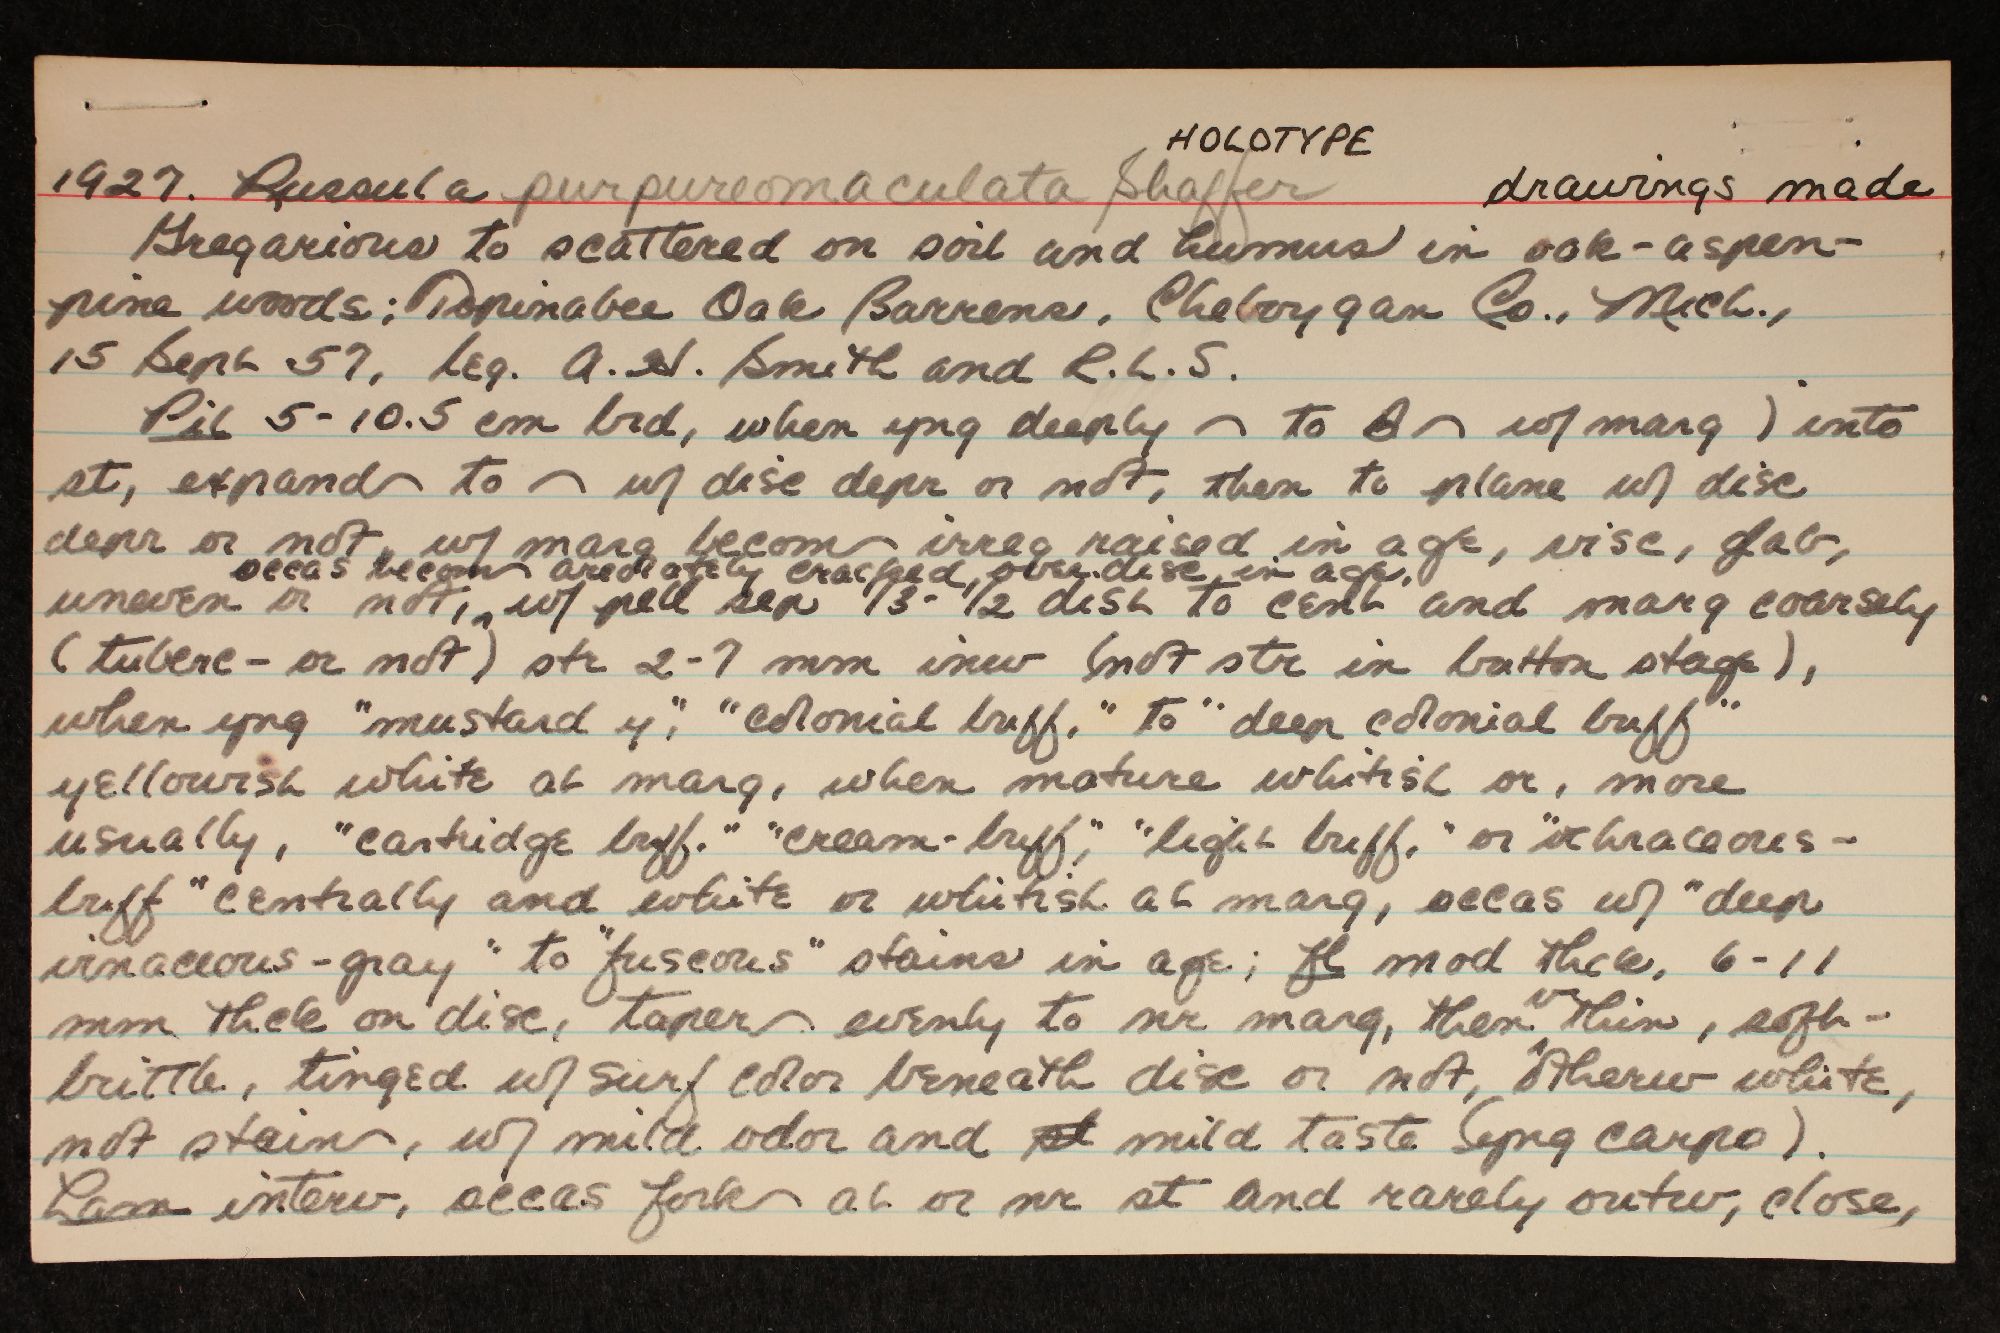 HOLOTYPE
1927. Russula purpureomaculata Shaffer drawings made
Gregarious to scattered on soil and humus in oak-aspen-
pine woods; Topinabee Oak Barrens, Cheboygan Co., Mich.,
15 Sept 57, leg. A.H. Smith and R.L.S.
Pil 5-10.5 cm brd, when yng deeply ⌒ to ⌒ w/ marg ) into
st, expand⌒ to ⌒ w/ disc depr or not, then to plane w/ disc
depr or not, w/ marg becom⌒ irreg raised in age, visc, glab,
occas becom⌒ areolately cracked over disc in age,
uneven or not, w/ pell sep 1/3-1/2 dist to cent and marg coarsely
(tuberc- or not) str 2-7 mm inw (not str in button stage),
when yng "mustard y", "colonial buff," to "deep colonial buff"
yellowish white at marg, when mature whitish or, more
usually, "cartridge buff." "cream-buff," "light buff," or "ochraceous-
buff" centrally and white or whitish at marg, occas w/ "deep
vinaceous-gray" to "fuscous" stains in age; fl mod thck, 6-11
mm thck on disc, taper⌒ evenly to nr marg, then v thin, soft-
brittle, tinged w/ surf color beneath disc or not, otherw white,
not stain⌒, w/ mild odor and mild taste (yng carpo).
Lam interv, occas fork⌒ at or nr st and rarely outw, close,